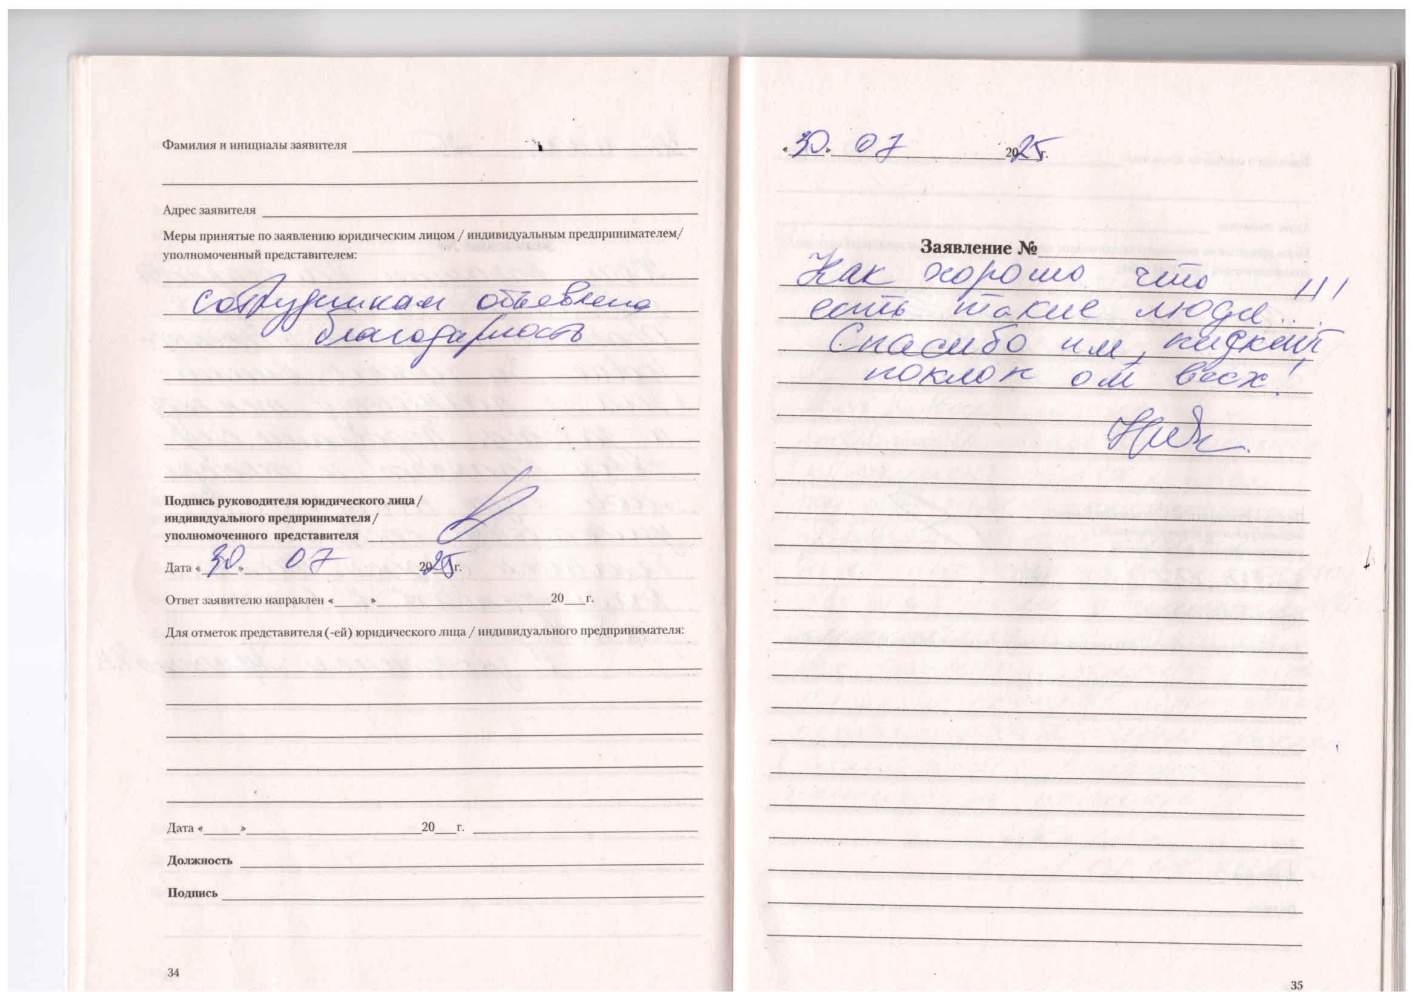 Фамилия и инициалы заявителя
Адрес заявителя
Меры принятые по заявлению юридическим лицом / индивидуальным предпринимателем/
уполномоченный представителем:
сотрудникам объявлена
благодарность
Подпись руководителя юридического лица /
индивидуального предпринимателя /
уполномоченного представителя
Дата «30» 07 2025г.
Ответ заявителю направлен «_____»__________20___г.
Для отметок представителя (-ей) юридического лица / индивидуального предпринимателя:
Дата «_____»__________20___г.
Должность
Подпись
34
«30» 07 2025г.
Заявление №
Как хорошо что
есть такие люди...!!!
Спасибо им, низкий
поклон от всех!
35